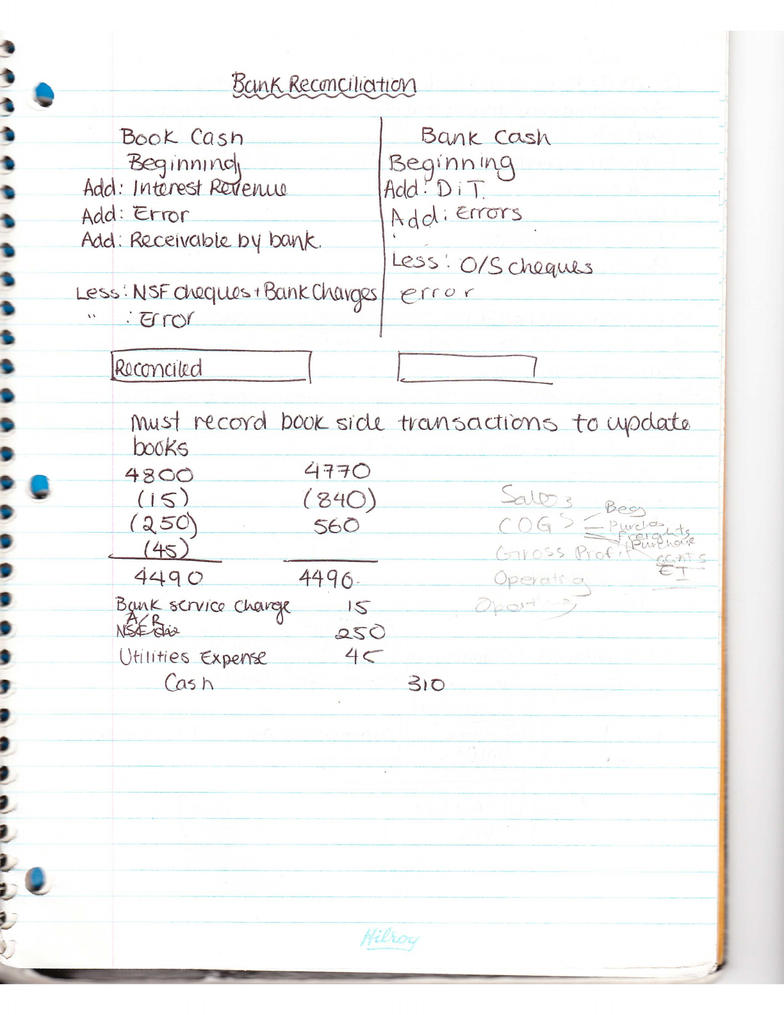 Bank Reconciliation
Book Cash
Beginning
Add: Interest Revenue
Add: Error
Add: Receivable by bank.
Less: NSF cheques + Bank Charges
" : Error
Bank Cash
Beginning
Add: DiT.
Add: Errors
Less: O/S cheques
error
Reconciled
Must record book side transactions to update
books
4800 4770
(15) (840)
(250) 560
(45)
4490 4490
Bank service charge 15
A/R 250
NSF
Utilities Expense 45
Cash 310
Sales
COGS
Beg
Purcha
Freights
Purchase
EI
Gross Profit
Operating
Hilroy